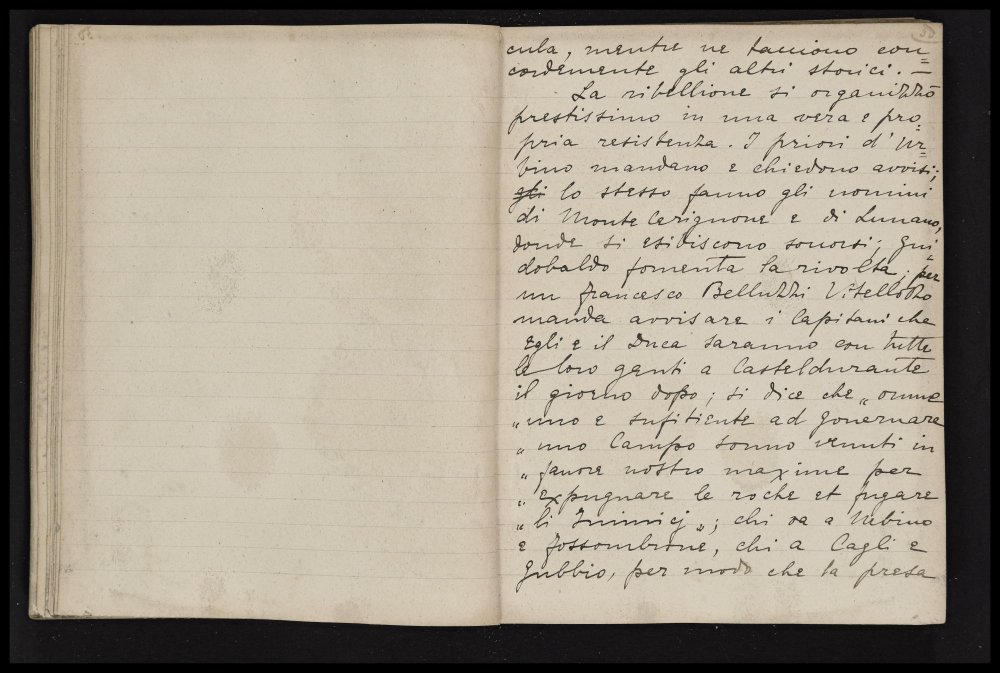 cula, mentre ne tacciono con=
cordemente gli altri storici. —
La ribellione si organizzò
prestissimo in una vera e pro=
pria resistenza. I priori d'Ur=
bino mandano e chiedono avvisi;
gli lo stesso fanno gli uomini
di Monte Cerignone e di Lunano,
donde si esibiscono soccorsi; Gui=
dobaldo fomenta la rivolta; per
un Francesco Belluzzi Vitellozzo
manda avvisare i Capitani che
Egli e il Duca saranno con tutte
le loro genti a Casteldurante
il giorno dopo; si dice che „ omne
„ uno e sufitiente ad governare
„ uno Campo sonno venuti in
„ favore nostro maxime per
„ expugnare le roche et fugare
„ li Inimicj „; chi va a Urbino
e Fossombrone, chi a Cagli e
Gubbio, per modo che la presa